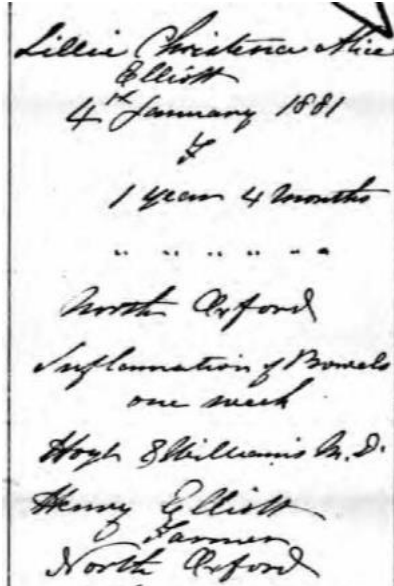 Lillie Christena Alice
Elliott
4th January 1881
F
1 year 4 months
" " " " " "
North Orford
Inflammation of Bowels
one week
Williams M.D.
Henry Elliott
Farmer
North Orford